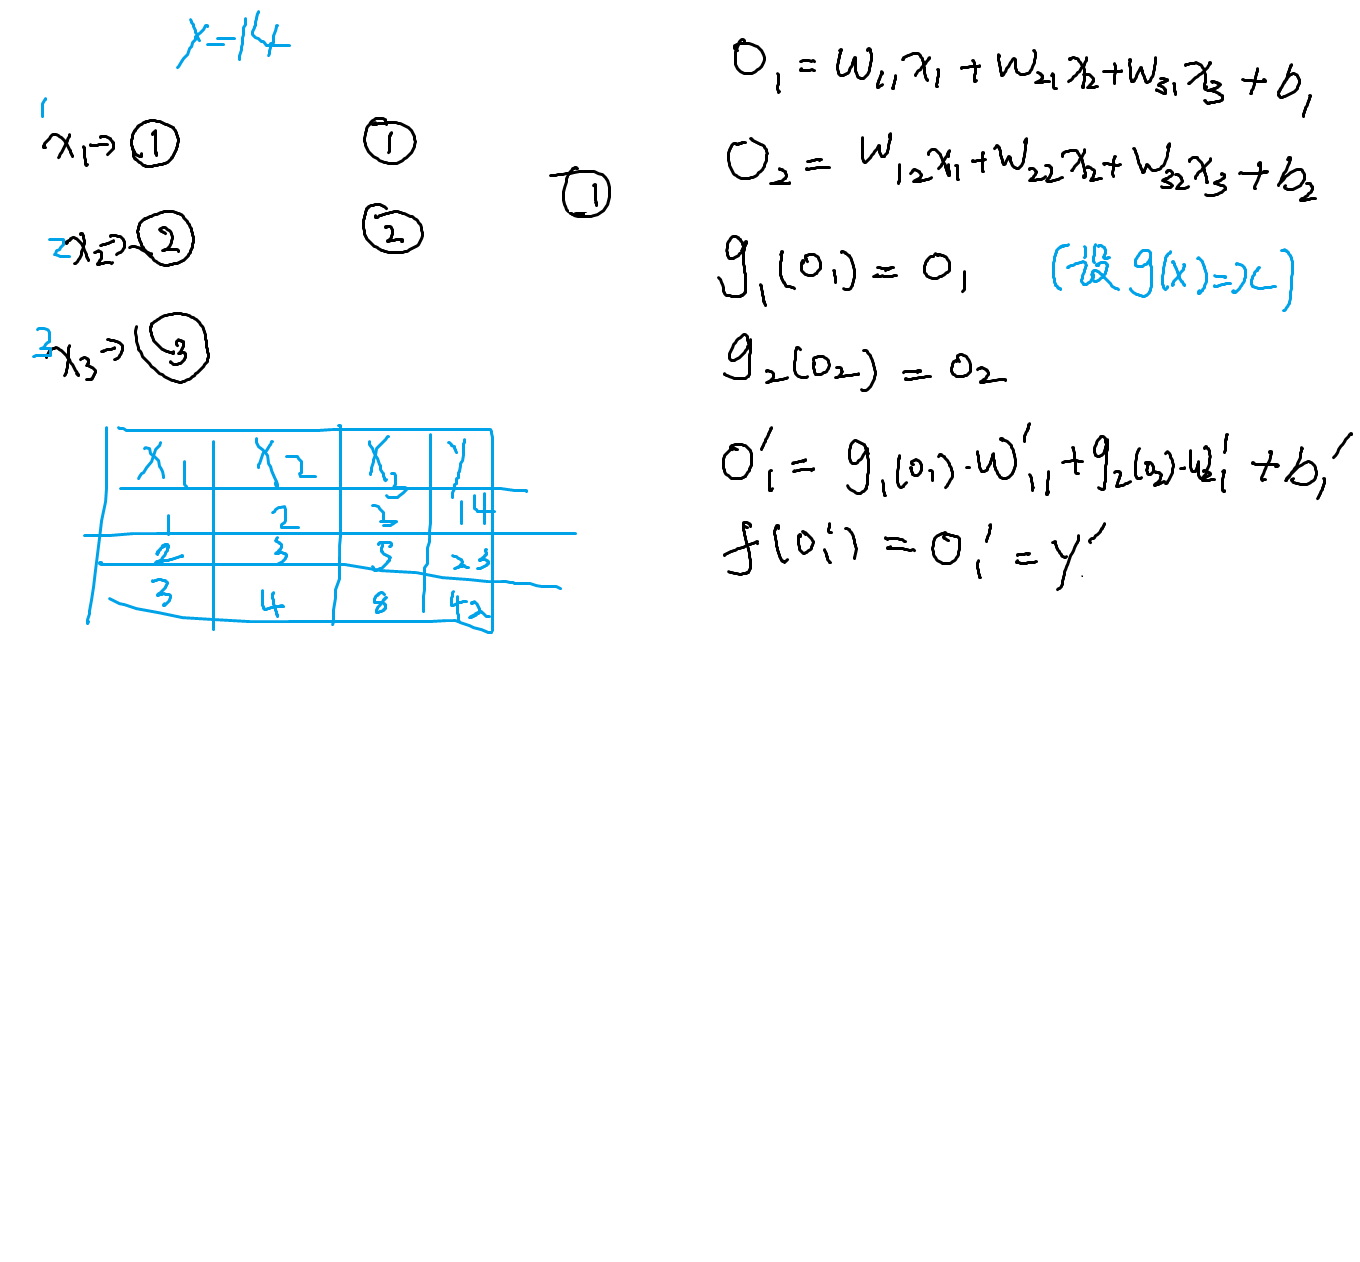 Y=14
1
x₁→ ① ①
2x₂→ ② ② ①
3x₃→ ③
X₁ X₂ X₃ Y
1 2 3 14
2 3 5 23
3 4 8 42
O₁ = W₁₁x₁ + W₂₁x₂ + W₃₁x₃ + b₁
O₂ = W₁₂x₁ + W₂₂x₂ + W₃₂x₃ + b₂
g₁(O₁) = O₁ (设 g(x)=x)
g₂(O₂) = O₂
O₁' = g₁(O₁)·W'₁₁ + g₂(O₂)·W₂₁' + b₁'
f(O₁') = O₁' = Y'